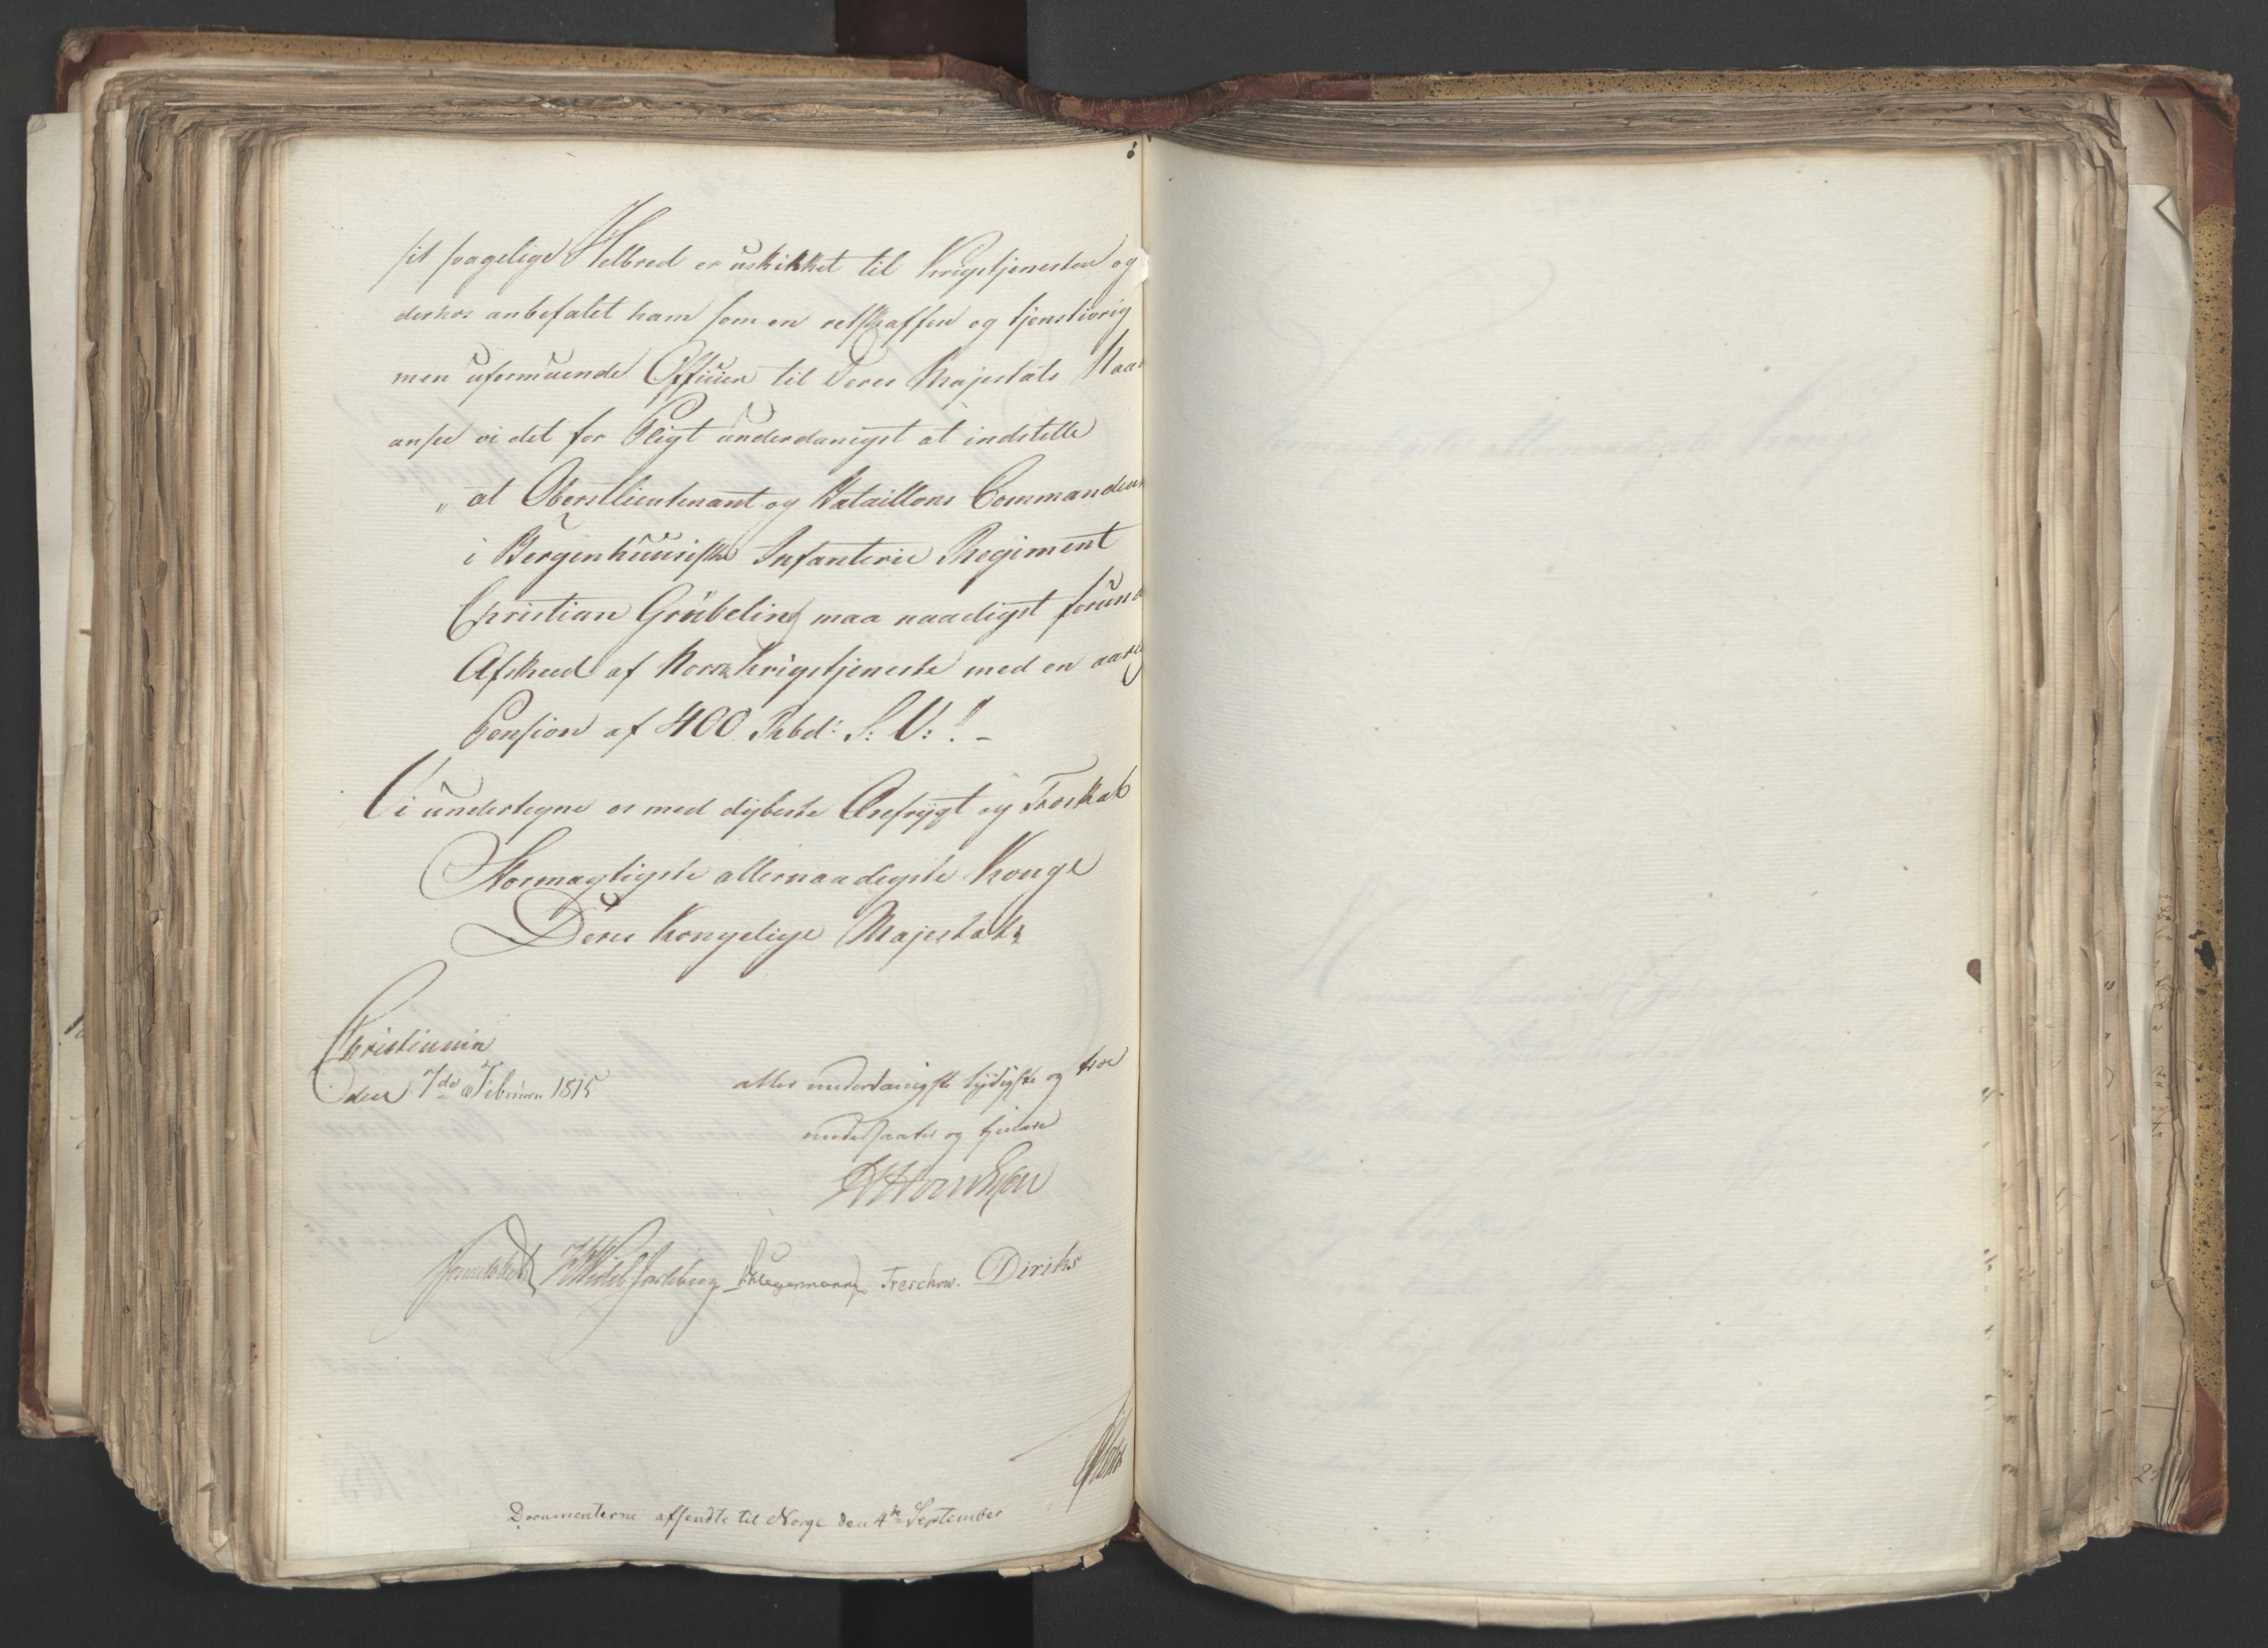 sit svagelige Helbred er uskikket til Krigstjenesten og
derhos anbefalet ham som en retskaffen og tjenstivrig
men uformuende Officier til Deres Majestæts Naa
ansee vi det for Pligt underdanigst at indstille
„ at Oberstlieutenant og Bataillons Commandeur
i Bergenhuusiske Infanterie Regiment
Christian Grübeling maa naadigst forund
Afskeed af Norsk Krigstjeneste med en aarl
Pension af 400 Rbd: S: V: !-
Vi undertegne os med dybeste Ærefrygt og Troskab
Stormægtigste allernaadigste Konge
Deres Kongelige Majestæts
Christiania
den 7de Februar 1815
aller underdanigste lydigste og troe
undersaatter og tjenere
Sommerhielm HWedel Jarlsberg Hegermann Treschow. Diriks
Documenterne afsendte til Norge den 4de September